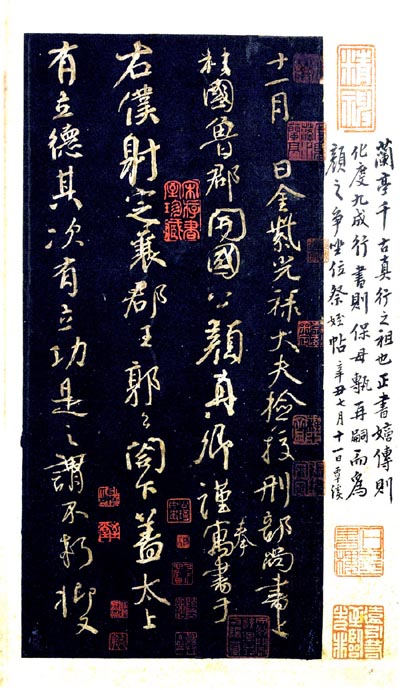 蘭亭千古真行之祖也正書嬗傳則
化度九成行書則保母甎再嗣而為
顏之爭坐位祭姪帖 辛丑七月十一日覃溪
十一月 日金紫光祿大夫檢挍刑部尚書上
柱國魯郡開國公顏真卿謹奉寓書于
右僕射定襄郡王郭公閤下蓋太上
有立德其次有立功是之謂不朽抑又
宋存書室珍藏